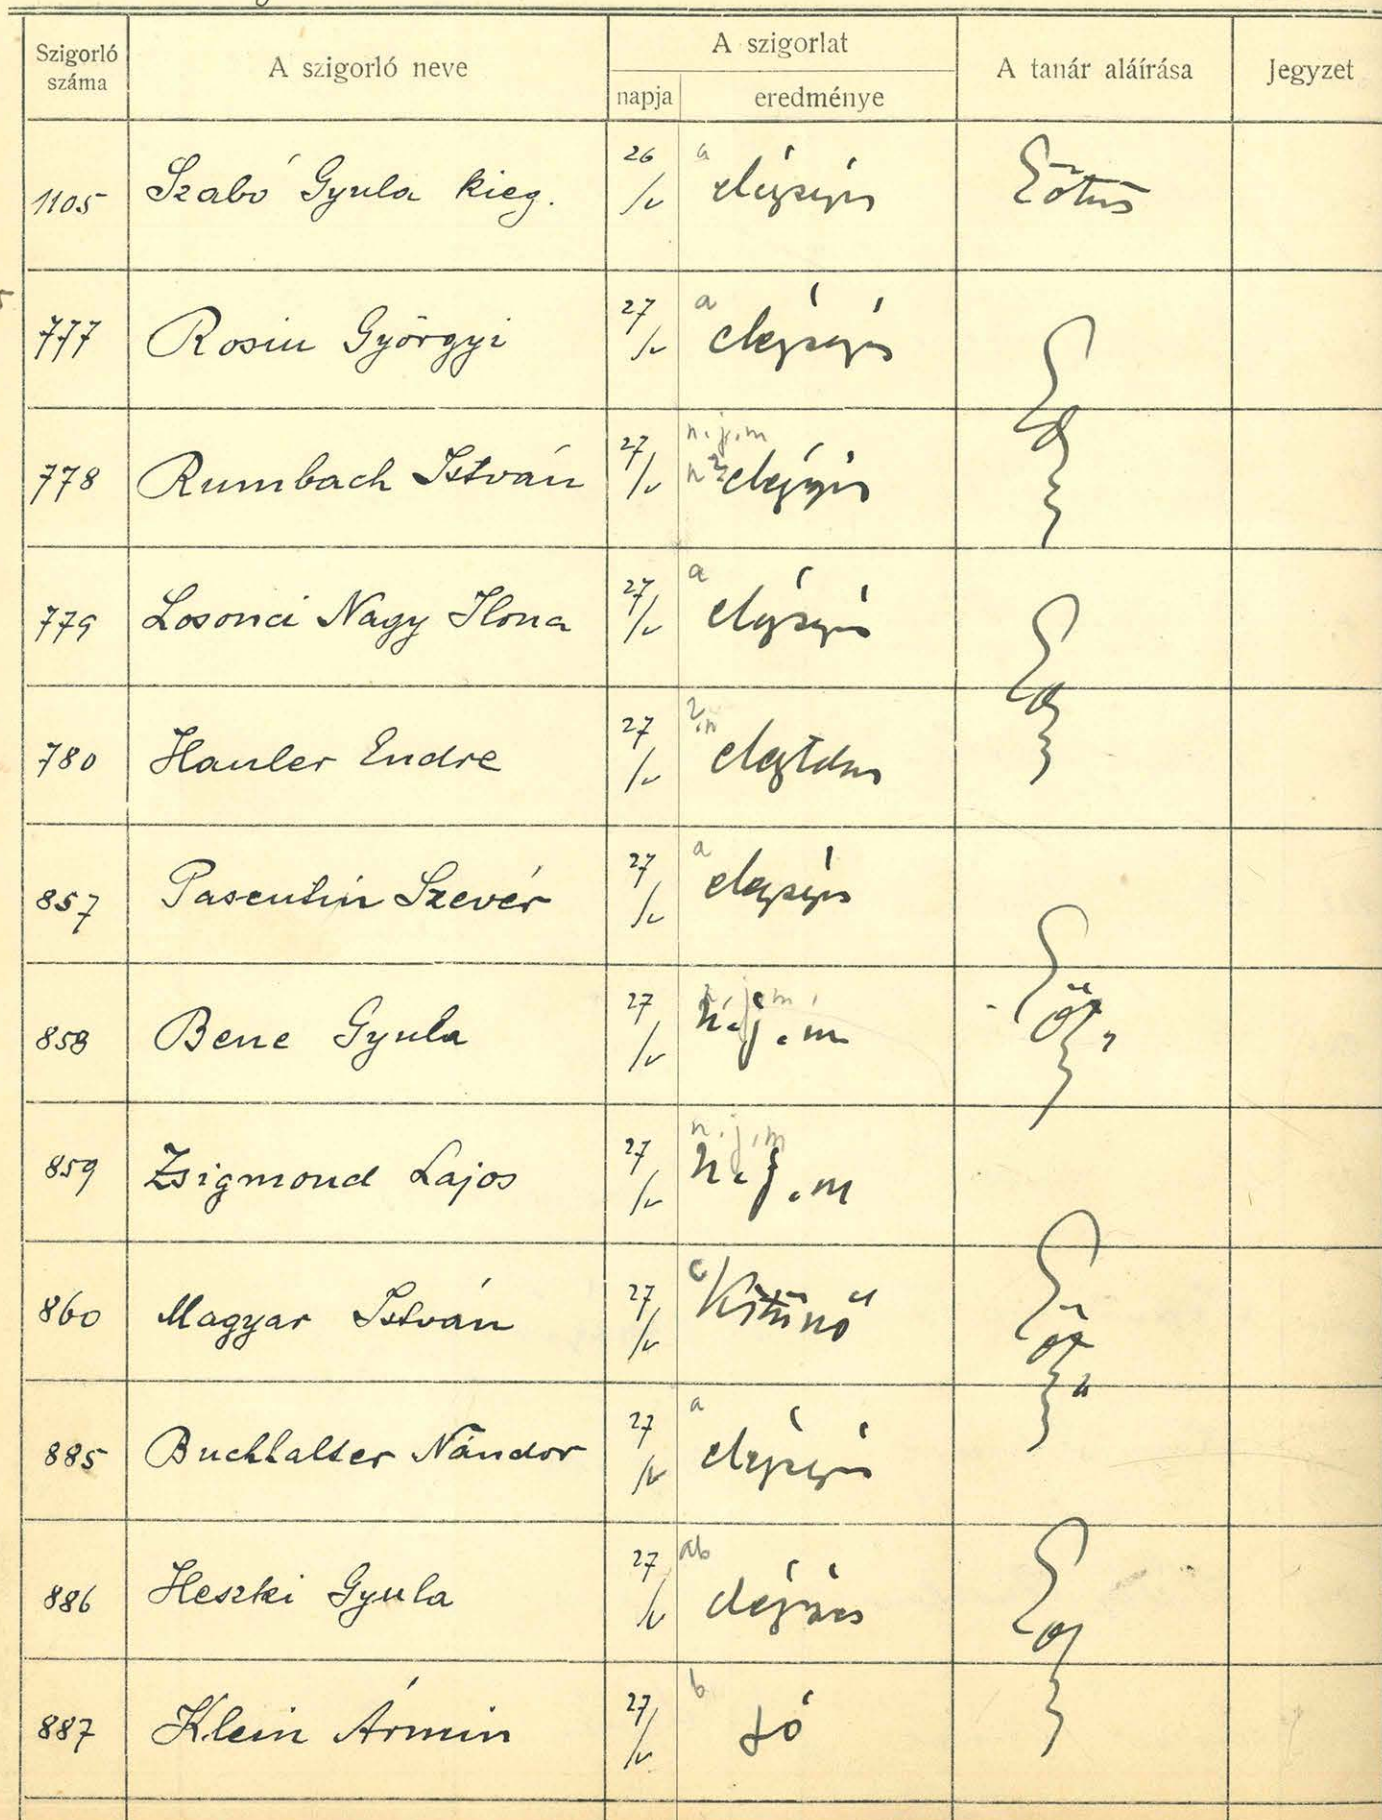 Szigorló száma
A szigorló neve
A szigorlat
napja
eredménye
A tanár aláírása
Jegyzet
1105 Szabó Gyula kieg. 26/V a elégséges Eötvös
777 Rosin Györgyi 27/V a elégséges
n.j.m
778 Rumbach István 27/V elégséges
779 Losonci Nagy Ilona 27/V a elégséges
780 Hauler Endre 27/V
857 Pasentin Szevér 27/V a elégséges
n.j.m.
858 Bene Gyula 27/V n.j.m
n.j.m
859 Zsigmond Lajos 27/V n.j.m
860 Magyar István 27/V c Kitünő
885 Buchhalter Nándor 27/V a elégséges
886 Heszki Gyula 27/V ab elégséges
887 Klein Ármin 27/V b jó